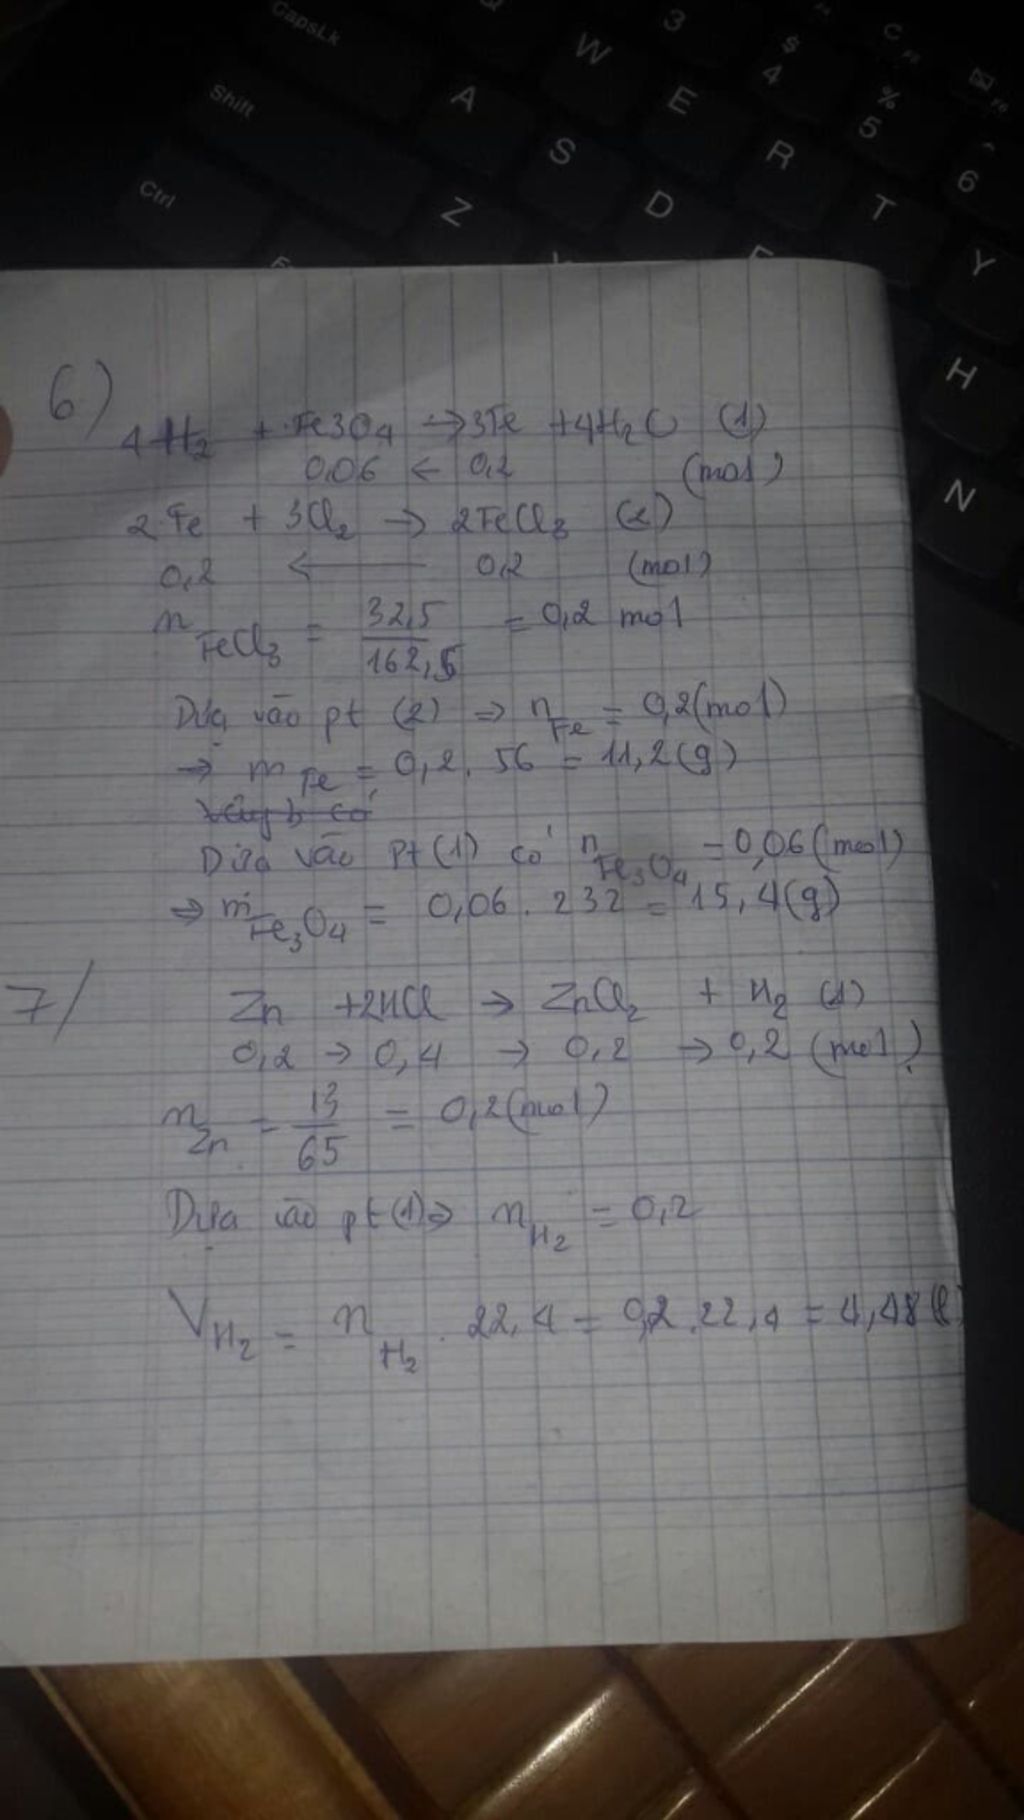 CapsLk
Q
3
$
4
C
%
5
^
6
W
E
R
T
Y
Shift
A
S
D
F
H
Ctrl
Z
N
6)
4H₂ + Fe3O4 → 3Fe + 4H₂O (1)
0,06 ← 0,2 (mol)
2Fe + 3Cl₂ → 2FeCl₃ (2)
0,2 ← 0,2 (mol)
n FeCl₃ = 32,5 / 162,5 = 0,2 mol
Dựa vào pt (2) ⇒ n Fe = 0,2(mol)
→ m Fe = 0,2. 56 = 11,2(g)
Dựa vào pt(1) có n Fe₃O₄ = 0,06(mol)
⇒ m Fe₃O₄ = 0,06. 232 = 15,4(g)
7/ Zn + 2HCl → ZnCl₂ + H₂ (1)
0,2 → 0,4 → 0,2 → 0,2 (mol)
n Zn = 13 / 65 = 0,2(mol)
Dựa vào pt(1) ⇒ n H₂ = 0,2
V H₂ = n H₂ . 22,4 = 0,2.22,4 = 4,48(l)